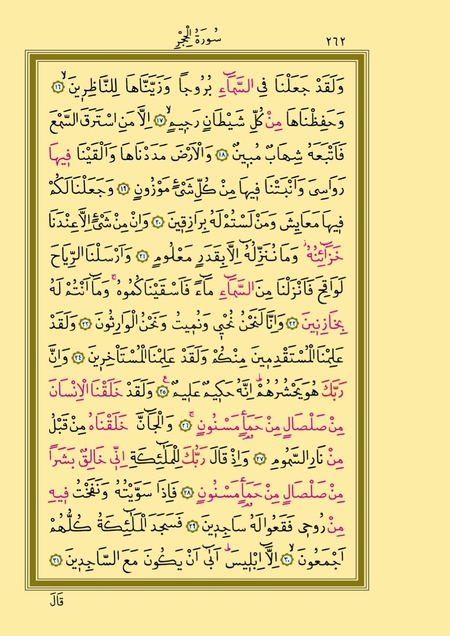 ٢٦٢ سُورَةُ الْحِجْرِ
وَلَقَدْ جَعَلْنَا فِى السَّمَٓاءِ بُرُوجاً وَزَيَّنَّاهَا لِلنَّاظِر۪ينَۙ ﴿١٦﴾
وَحَفِظْنَاهَا مِنْ كُلِّ شَيْطَانٍ رَج۪يمٍۙ ﴿١٧﴾ اِلَّا مَنِ اسْتَرَقَ السَّمْعَ
فَاَتْبَعَهُ شِهَابٌ مُب۪ينٌ ﴿١٨﴾ وَالْاَرْضَ مَدَدْنَاهَا وَاَلْقَيْنَا ف۪يهَا
رَوَاسِىَ وَاَنْبَتْنَا ف۪يهَا مِنْ كُلِّ شَىْءٍ مَوْزُونٍ ﴿١٩﴾ وَجَعَلْنَا لَكُمْ
ف۪يهَا مَعَايِشَ وَمَنْ لَسْتُمْ لَهُ بِرَازِق۪ينَ ﴿٢٠﴾ وَاِنْ مِنْ شَىْءٍ اِلَّا عِنْدَنَا
خَزَٓائِنُهُۘ وَمَا نُنَزِّلُهُٓ اِلَّا بِقَدَرٍ مَعْلُومٍ ﴿٢١﴾ وَاَرْسَلْنَا الرِّيَاحَ
لَوَاقِحَ فَاَنْزَلْنَا مِنَ السَّمَٓاءِ مَٓاءً فَاَسْقَيْنَاكُمُوهُۚ وَمَٓا اَنْتُمْ لَهُ
بِخَازِن۪ينَ ﴿٢٢﴾ وَاِنَّا لَنَحْنُ نُحْي۪ وَنُم۪يتُ وَنَحْنُ الْوَارِثُونَ ﴿٢٣﴾ وَلَقَدْ
عَلِمْنَا الْمُسْتَقْدِم۪ينَ مِنْكُمْ وَلَقَدْ عَلِمْنَا الْمُسْتَأْخِر۪ينَ ﴿٢٤﴾ وَاِنَّ
رَبَّكَ هُوَ يَحْشُرُهُمْۜ اِنَّهُ حَك۪يمٌ عَل۪يمٌ۟ ﴿٢٥﴾ وَلَقَدْ خَلَقْنَا الْاِنْسَانَ
مِنْ صَلْصَالٍ مِنْ حَمَأٍ مَسْنُونٍۚ ﴿٢٦﴾ وَالْجَٓانَّ خَلَقْنَاهُ مِنْ قَبْلُ
مِنْ نَارِ السَّمُومِ ﴿٢٧﴾ وَاِذْ قَالَ رَبُّكَ لِلْمَلٰٓئِكَةِ اِنّ۪ي خَالِقٌ بَشَراً
مِنْ صَلْصَالٍ مِنْ حَمَأٍ مَسْنُونٍ ﴿٢٨﴾ فَاِذَا سَوَّيْتُهُ وَنَفَخْتُ ف۪يهِ
مِنْ رُوح۪ي فَقَعُوا لَهُ سَاجِد۪ينَ ﴿٢٩﴾ فَسَجَدَ الْمَلٰٓئِكَةُ كُلُّهُمْ
اَجْمَعُونَۙ ﴿٣٠﴾ اِلَّٓا اِبْل۪يسَۜ اَبٰٓى اَنْ يَكُونَ مَعَ السَّاجِد۪ينَ ﴿٣١﴾
قَالَ